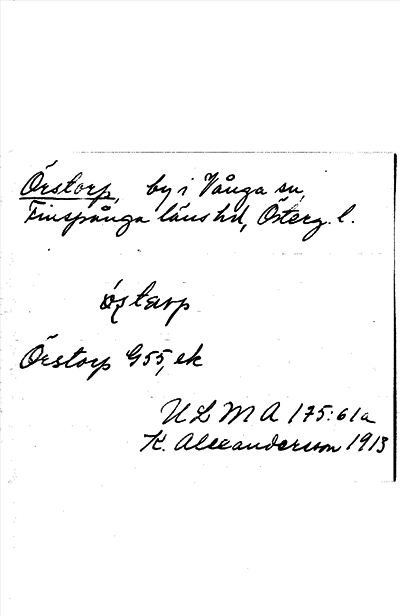 Örstorp, by i Vånga sn,
Finspånga läns hd, Österg. l.
Örstorp G55, ek
ULMA 175:61a
K. Alexandersson 1913